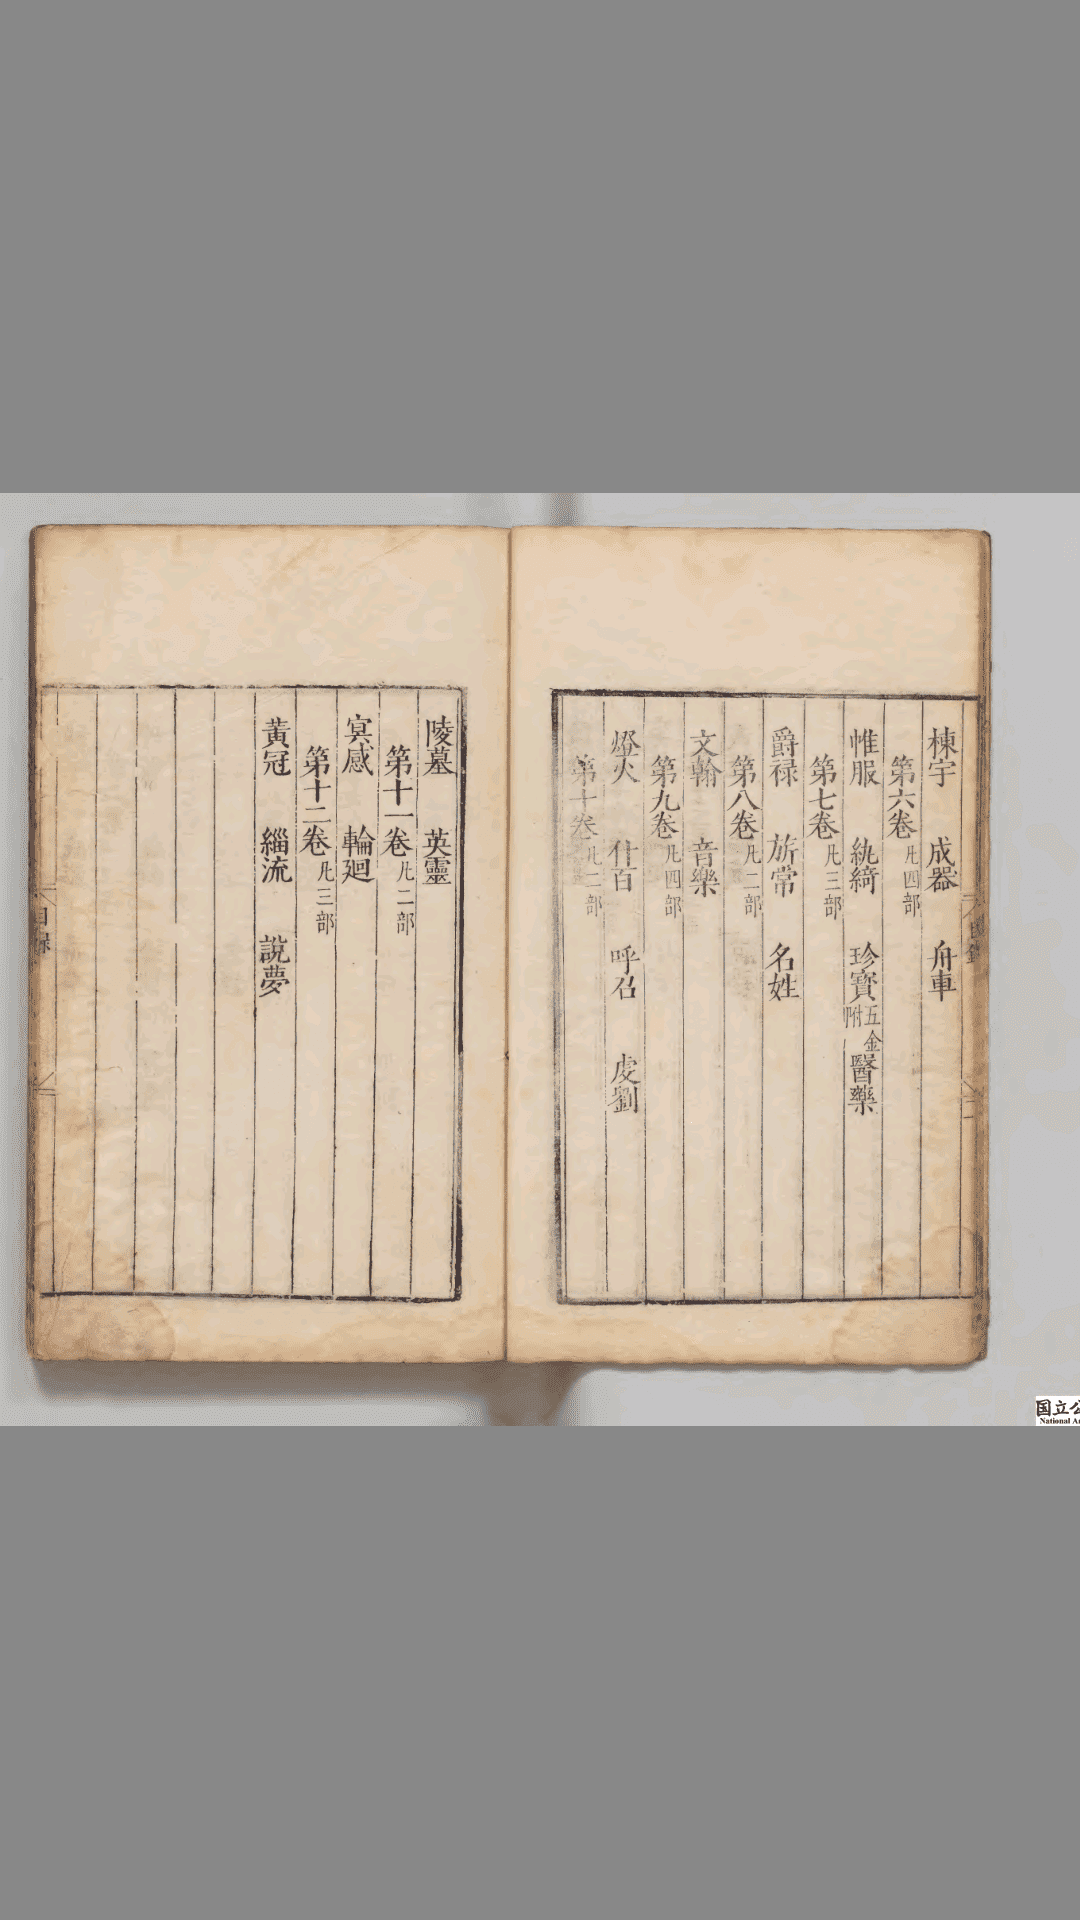 棟宇 成器 舟車
第六卷 凡四部
帷服 紈綺 珍寳 五金附 醫藥
第七卷 凡三部
爵禄 旂常 名姓
第八卷 凡二部
文翰 音樂
第九卷 凡四部
燈火 什百 呼召 虔劉
第十卷 凡二部
陵墓 英靈
第十一卷 凡二部
冥感 輪廻
第十二卷 凡三部
黄冠 緇流 説夢
目録
国立公
National A